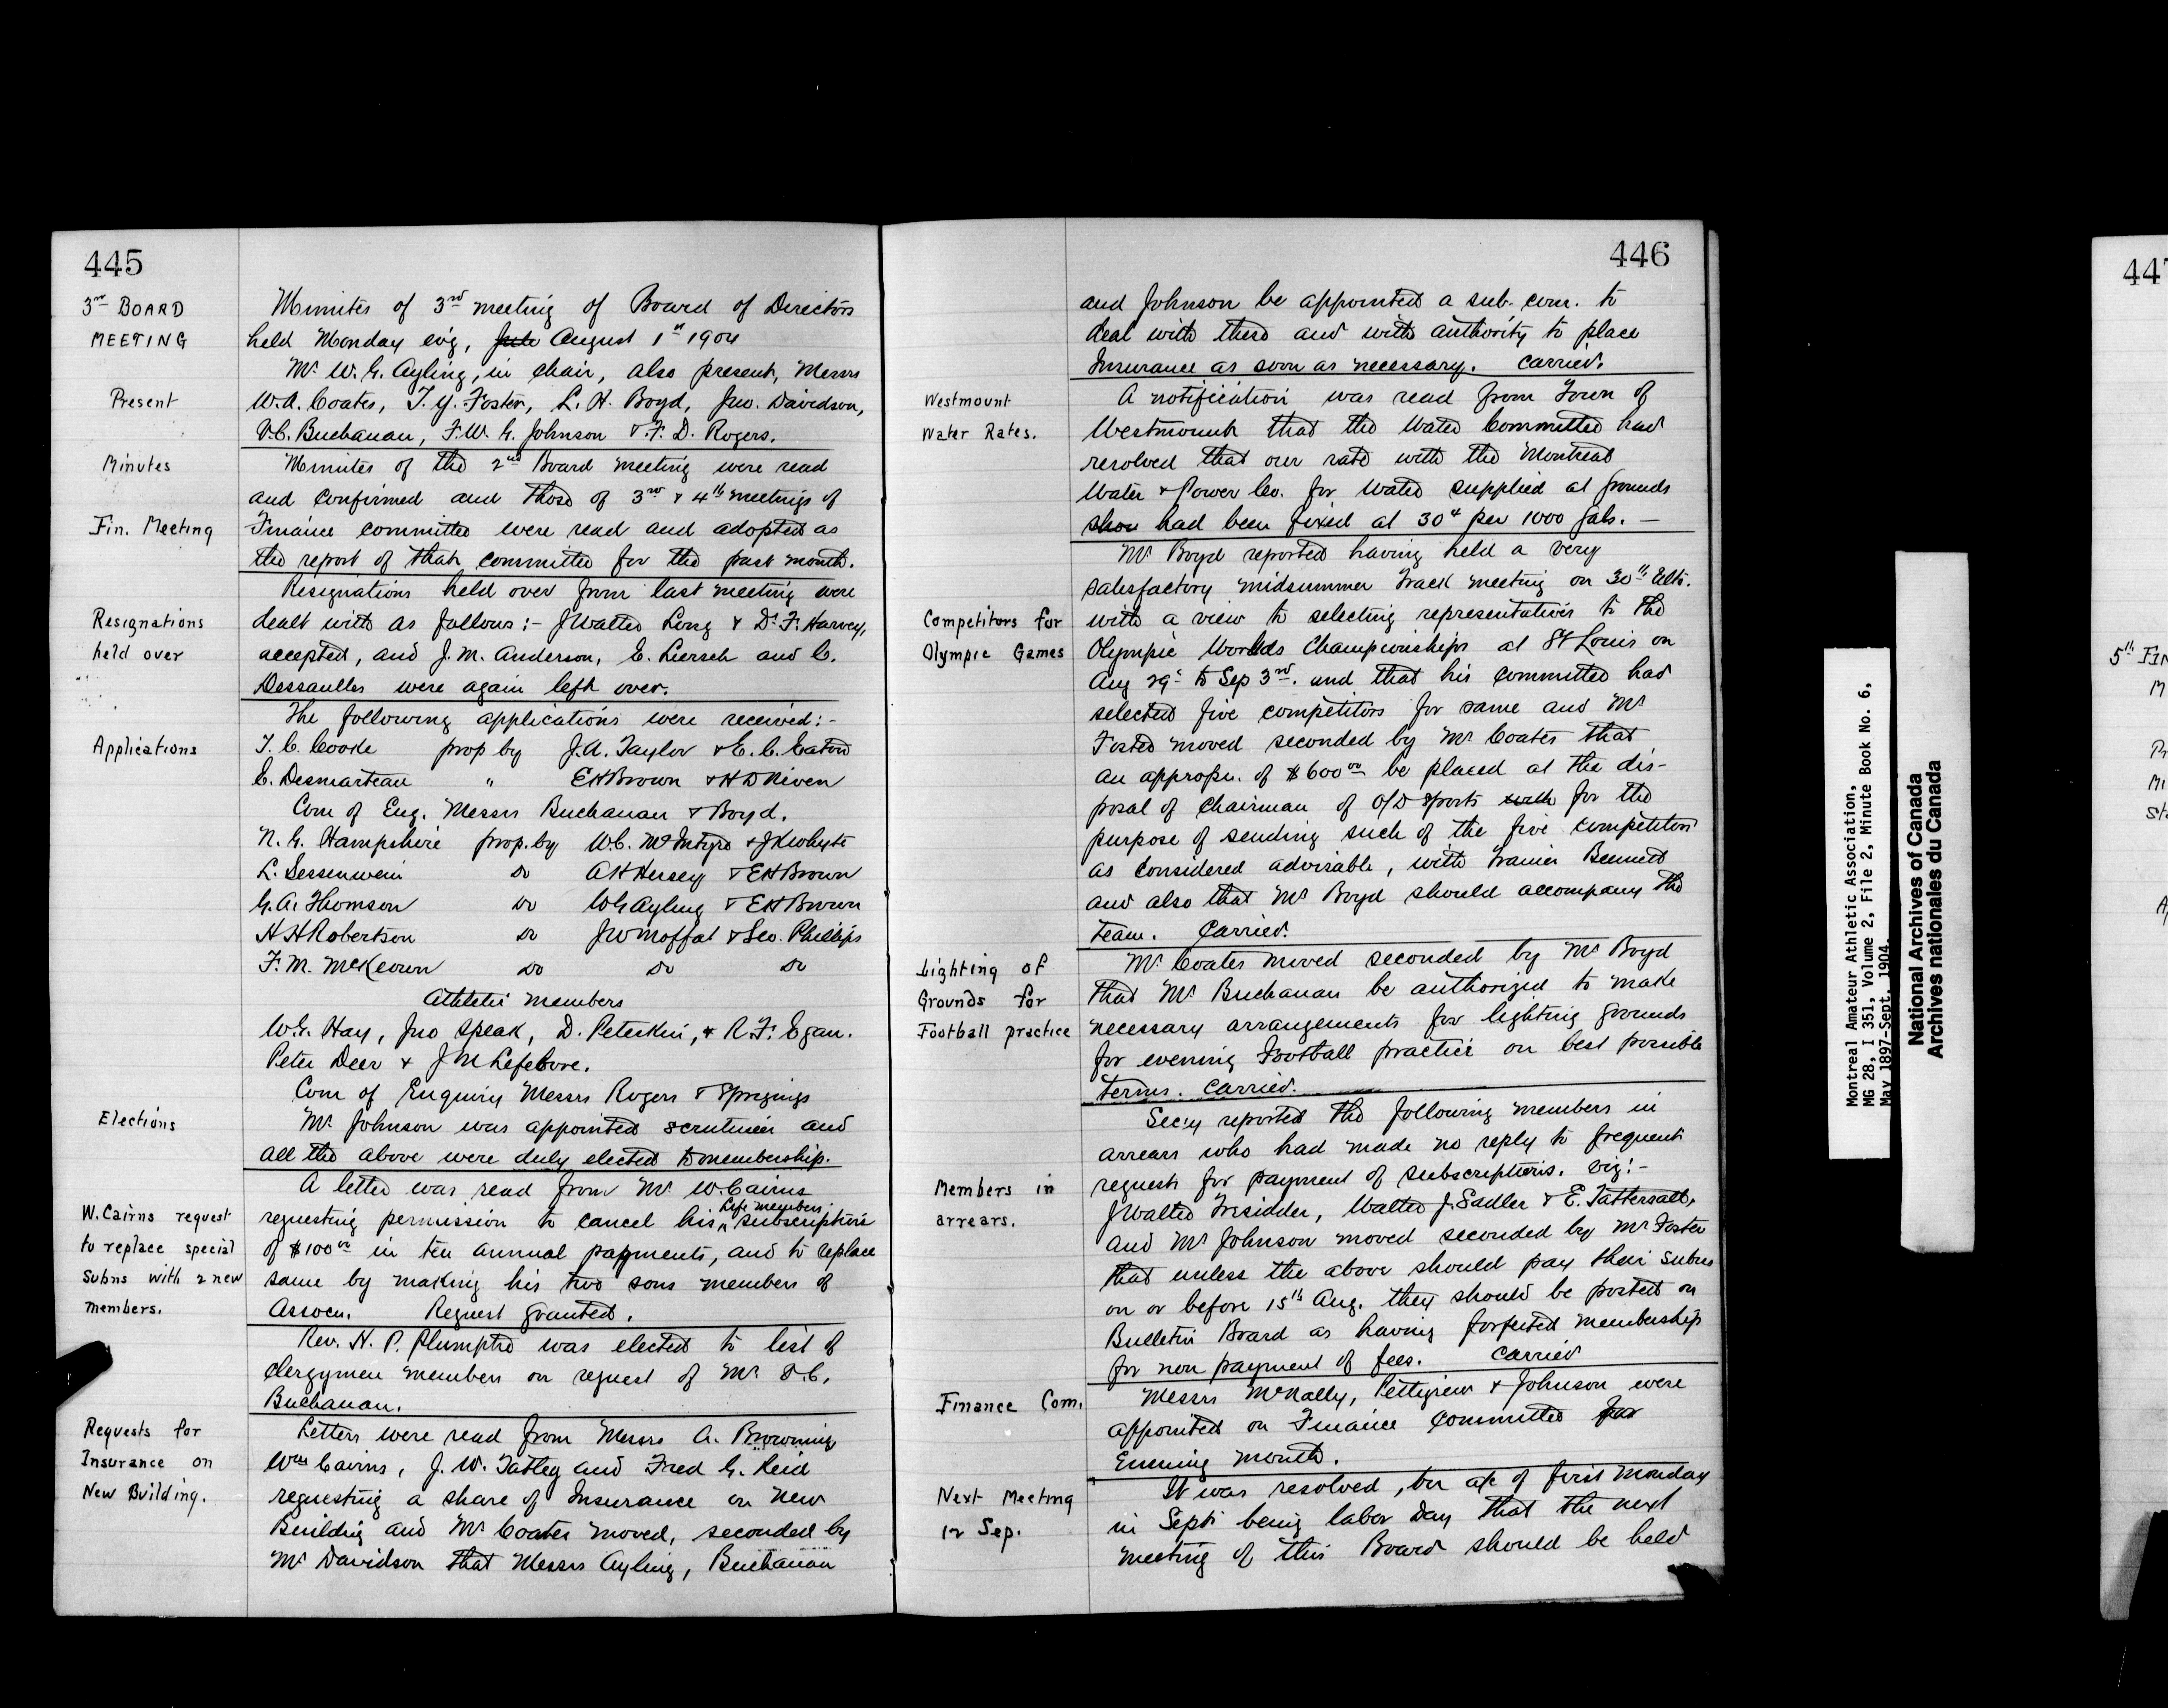 445
3rd BOARD
MEETING
Minutes of 3rd meeting of Board of Directors
held Monday evg, July August 1st 1904
Mr W. G. Ayling, in chair, also present, Messrs
Present
W.A. Coates, T. Y. Foster, L. H. Boyd, Jno. Davidson,
V.C. Buchanan, F.W. G. Johnson & F. D. Rogers.
Minutes
Minutes of the 2nd Board meeting were read
and confirmed and those of 3rd & 4th meetings of
Fin. Meeting
Finance committee were read and adopted as
the report of that committee for the past month.
Resignations held over from last meeting were
Resignations
held over
dealt with as follows:- J Walter Long & Dr F. Harvey,
accepted, and J. M. Anderson, E. Liersch and C.
Dessaulles were again left over.
The following applications were received:-
Applications
T. C. Cooke prop by J. A. Taylor & E. C. Eaton
E. Desmarteau " E H Brown & H D Niven
Com of Enq. Messrs Buchanan & Boyd.
N. G. Hampshire prop. by W. C. McIntyre & J K Whyte
L. Sessenwein do A H Hersey & E H Brown
G. A. Thomson do W G Ayling & E H Brown
H H Robertson do J W Moffat & Geo. Phillips
F. M. McKeown do do do
Athletic Members
W. G. Hay, Jno Speak, D. Peterkin, & R. F. Egan.
Peter Deer & J M Lefebvre.
Com of Enquiry Messrs Rogers & Spriggings
Elections
Mr Johnson was appointed scrutinier and
all the above were duly elected to membership.
A letter was read from Mr. W. Cairns
W. Cairns request
to replace special
Subns with 2 new
members.
requesting permission to cancel his Life Members subscription
of $100.00 in ten annual payments, and to replace
same by making his two sons members of
Assocn. Request granted.
Rev. H. P. Plumptre was elected to list of
clergymen members on request of Mr
Buchanan.
Requests for
Insurance on
New Building.
Letters were read from Messrs A. Browning
Wm Cairns, J. W. Tatley and Fred G. Reid
requesting a share of Insurance on New
Building and Mr Coates moved, seconded by
Mr Davidson that Messrs Ayling, Buchanan
446
and Johnson be appointed a sub. com. to
deal with these and with authority to place
Insurance as soon as necessary. Carried.
Westmount
Water Rates.
A notification was read from Town of
Westmount that the Water Committee had
resolved that our rate with the Montreal
Water & Power Co. for water supplied at grounds
had been fixed at 30¢ per 1000 gals. —
Mr Boyd reported having held a very
satisfactory midsummer Track meeting on 30th Ulto.
Competitors for
Olympic Games
with a view to selecting representatives to the
Olympic Worlds Championships at St Louis on
Aug 29th to Sep 3rd. and that his committee had
selected five competitors for same and Mr
Foster moved seconded by Mr Coates that
an appropn. of $600.00 be placed at the dis-
posal of Chairman of O/D sports with for the
purpose of sending such of the five competitors
as considered advisable, with Trainer Bennett
and also that Mr Boyd should accompany the
team. Carried.
Lighting of
Grounds for
Football practice
Mr. Coates moved seconded by Mr Boyd
that Mr Buchanan be authorized to make
necessary arrangements for lighting grounds
for evening Football practice on best possible
terms. Carried.
Secy reported the following members in
arrears who had made no reply to frequent
Members in
arrears.
requests for payment of subscriptions. viz:-
J Walter Trisidder, Walter J. Sadler & E. Tattersall,
and Mr Johnson moved seconded by Mr Foster
that unless the above should pay their subns
on or before 15th Aug. they should be posted on
Bulletin Board as having forfeited membership
for non payment of fees. Carried
Finance Com.
Messrs McNally, Pettigrew & Johnson were
appointed on Finance Committee for
Ensuing month.
Next Meeting
12 Sep.
It was resolved, on a/c of first Monday
in Sept being labor Day that the next
meeting of this Board should be held
Montreal Amateur Athletic Association,
MG 28, I 351, Volume 2, File 2, Minute Book No. 6,
May 1897-Sept. 1904.
National Archives of Canada
Archives nationales du Canada
447
5th FIN